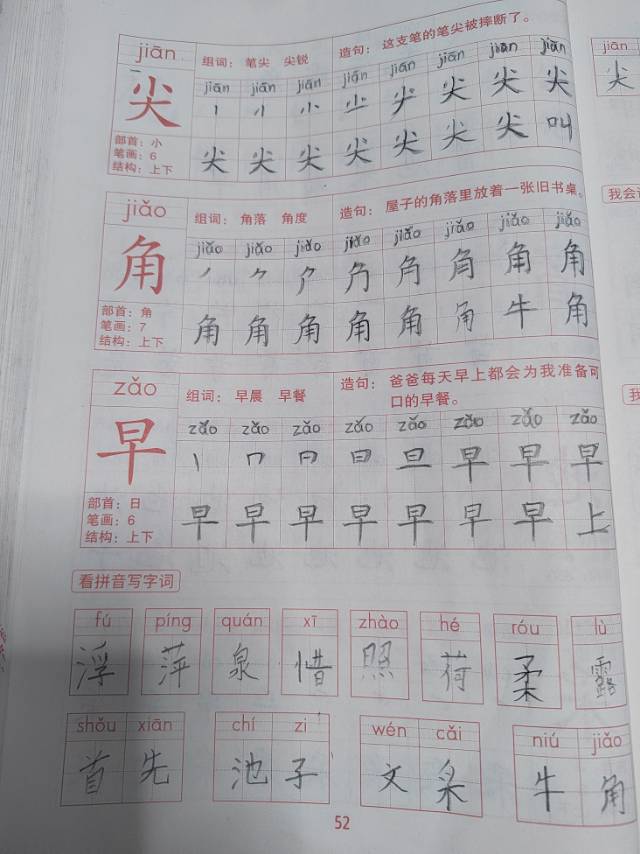 jiān 组词：笔尖 尖锐 造句：这支笔的笔尖被摔断了。
jiān jiān jiān jiān jiān jiān jiān jiān
尖 尖 尖 尖 尖
部首：小
笔画：6
结构：上下
尖 尖 尖 尖 尖 尖 尖 叫
jiǎo 组词：角落 角度 造句：屋子的角落里放着一张旧书桌。
jiǎo jiǎo jiǎo jiǎo jiǎo jiǎo jiǎo jiǎo
角 角 角 角
部首：角
笔画：7
结构：上下
角 角 角 角 角 角 牛 角
zǎo 组词：早晨 早餐 造句：爸爸每天早上都会为我准备可
口的早餐。
zǎo zǎo zǎo zǎo zǎo zǎo zǎo zǎo
早 旦 早 早 早
部首：日
笔画：6
结构：上下
早 早 早 早 早 早 早 上
看拼音写字词
fú píng quán xī zhào hé róu lù
浮 萍 泉 惜 照 荷 柔 露
shǒu xiān chí zi wén cǎi niú jiǎo
首 先 池 子 文 采 牛 角
52
jiān
尖
我会